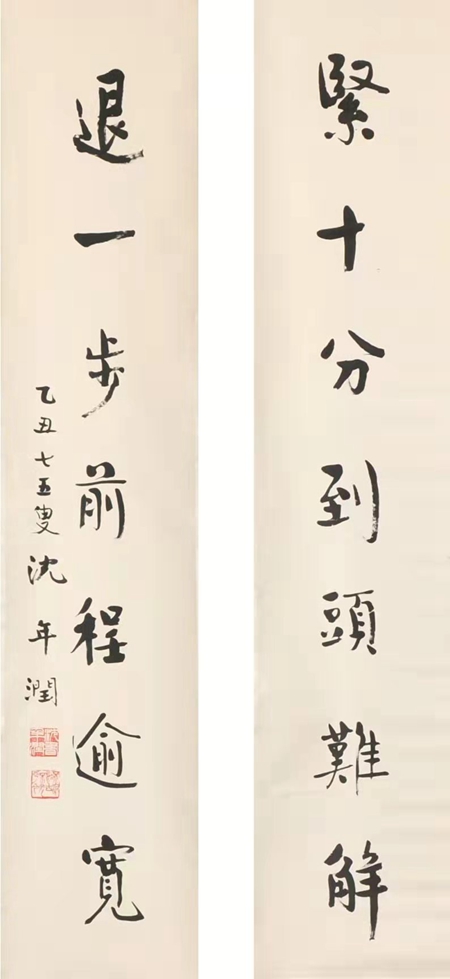 緊十分到頭難解
退一步前程逾寬
乙丑七五叟沈年潤